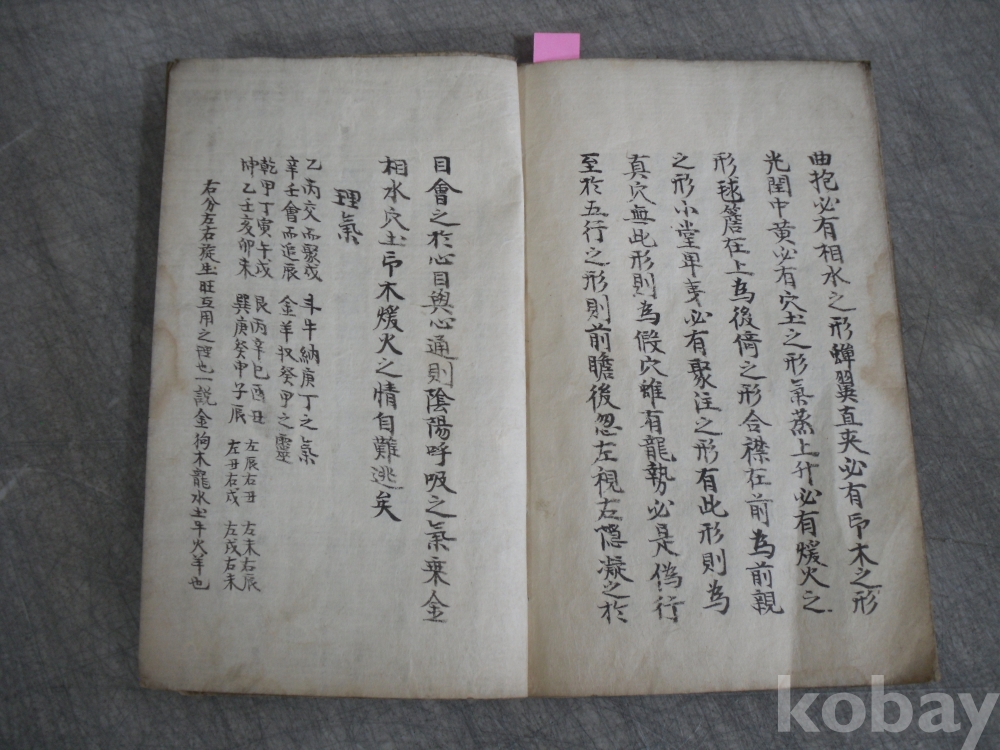 曲抱必有相水之形蟬翼直夾必有印木之形
光閏中黃必有穴土之形氣蒸上升必有煖火之
形毬簷在上為後倚之形合襟在前為前親
之形小堂界麦必有聚注之形有此形則為
真穴無此形則為假穴雖有龍勢必是偽行
至於五行之形則前瞻後忽左視右隱凝之於
目會之於心目與心通則陰陽呼吸之氣乘金
相水穴土印木煖火之情自難逃矣
理氣
乙丙交而聚戌 斗牛納庚丁之氣
辛壬會而追辰 金羊收癸甲之靈
乾甲丁寅午戌 艮丙辛巳酉丑 左辰右丑 左未右辰
坤乙壬亥卯未 巽庚癸申子辰 左丑右戌 左戌右未
右分左右旋生旺互用之理也一說金狗木龍水土牛火羊也
kobay